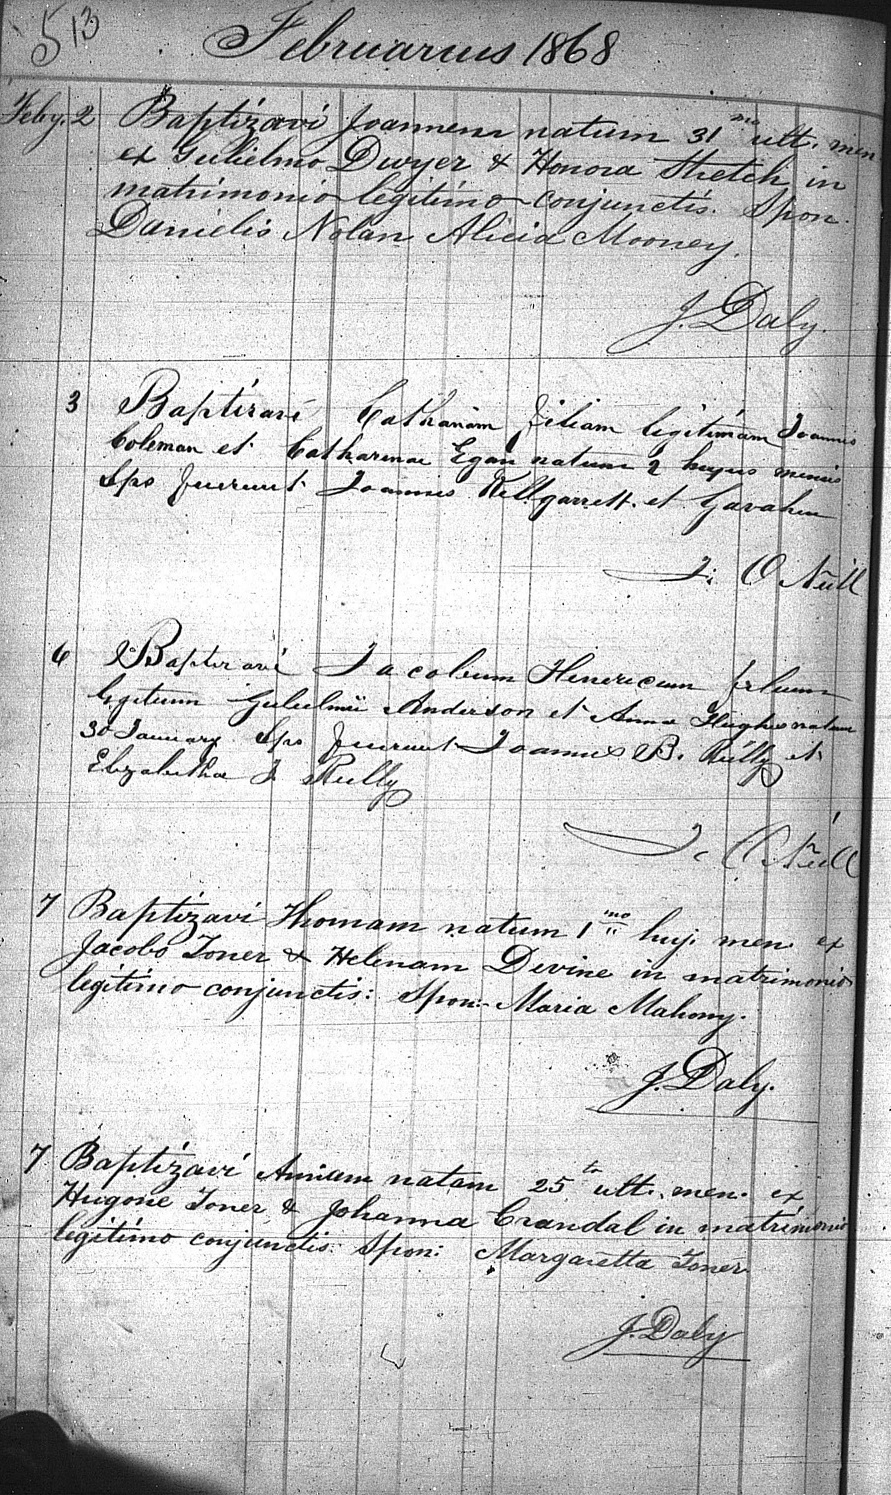 513
Februarius 1868
Feby. 2 Baptizavi Joannem natum 31mo ult. men
ex Gulielmo Dwyer & Honora Stretch in
matrimonio legitimo conjunctis. Spon.
Danielis Nolan Alicia Mooney.
J. Daly.
3 Baptizavi Cathariam filiam legitimam Joannis
Coleman et Catharinae Egan natum 2 hujus mensis
Sps fuerunt Joannis et Gavahen
J. O'Neill
6 Baptizavi Jacobum Henericum filium
legitium Gulielmii Anderson et Anna Hughes natum
30 January Sps fuerunt Joannes B. Reilly et
Elizabetha J Reilly
J. O'Neill
7 Baptizavi Thomam natum 1mo huj. men. ex
Jacobo Toner & Helenam Devine in matrimonio
legitimo conjunctis: Spon:- Maria Mahony.
J. Daly.
7 Baptizavi Anniam natam 25to ult. men. ex
Hugone Toner & Johanna Crandal in matrimonio
legitimo conjunctis. Spon: Margaretta Toner
J. Daly